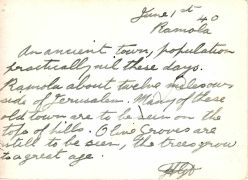 June 1st 40
Ramola
An ancient town, population
practically nil these days.
Ramola about twelve miles our
side of Jerusalem. Many of these
old town are to be seen on the
tops of hills. Olive Groves are
still to be seen, the trees grow
to a great age.